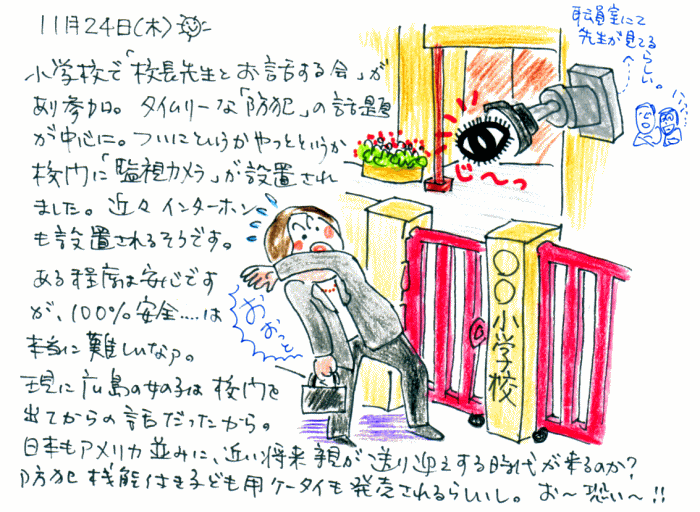 11月24日(木)
小学校で「校長先生とお話する会」が
あり参加。タイムリーな「防犯」の話題
が中心に。ついにというかやっとというか
校門に「監視カメラ」が設置され
ました。近々インターホン
も設置されるそうです。
ある程度は安心です
が、100%安全‥‥は
本当に難しいなァ。
現に広島の女の子は校門を
出てからの話だったから。
日本もアメリカ並みに、近い将来親が送り迎えする時代が来るのか?
防犯機能付き子ども用ケータイも発売されるらしいし。お〜恐い〜!!
職員室にて
先生が見てる
らしい。
じ〜っ
おおっと
〇〇小学校